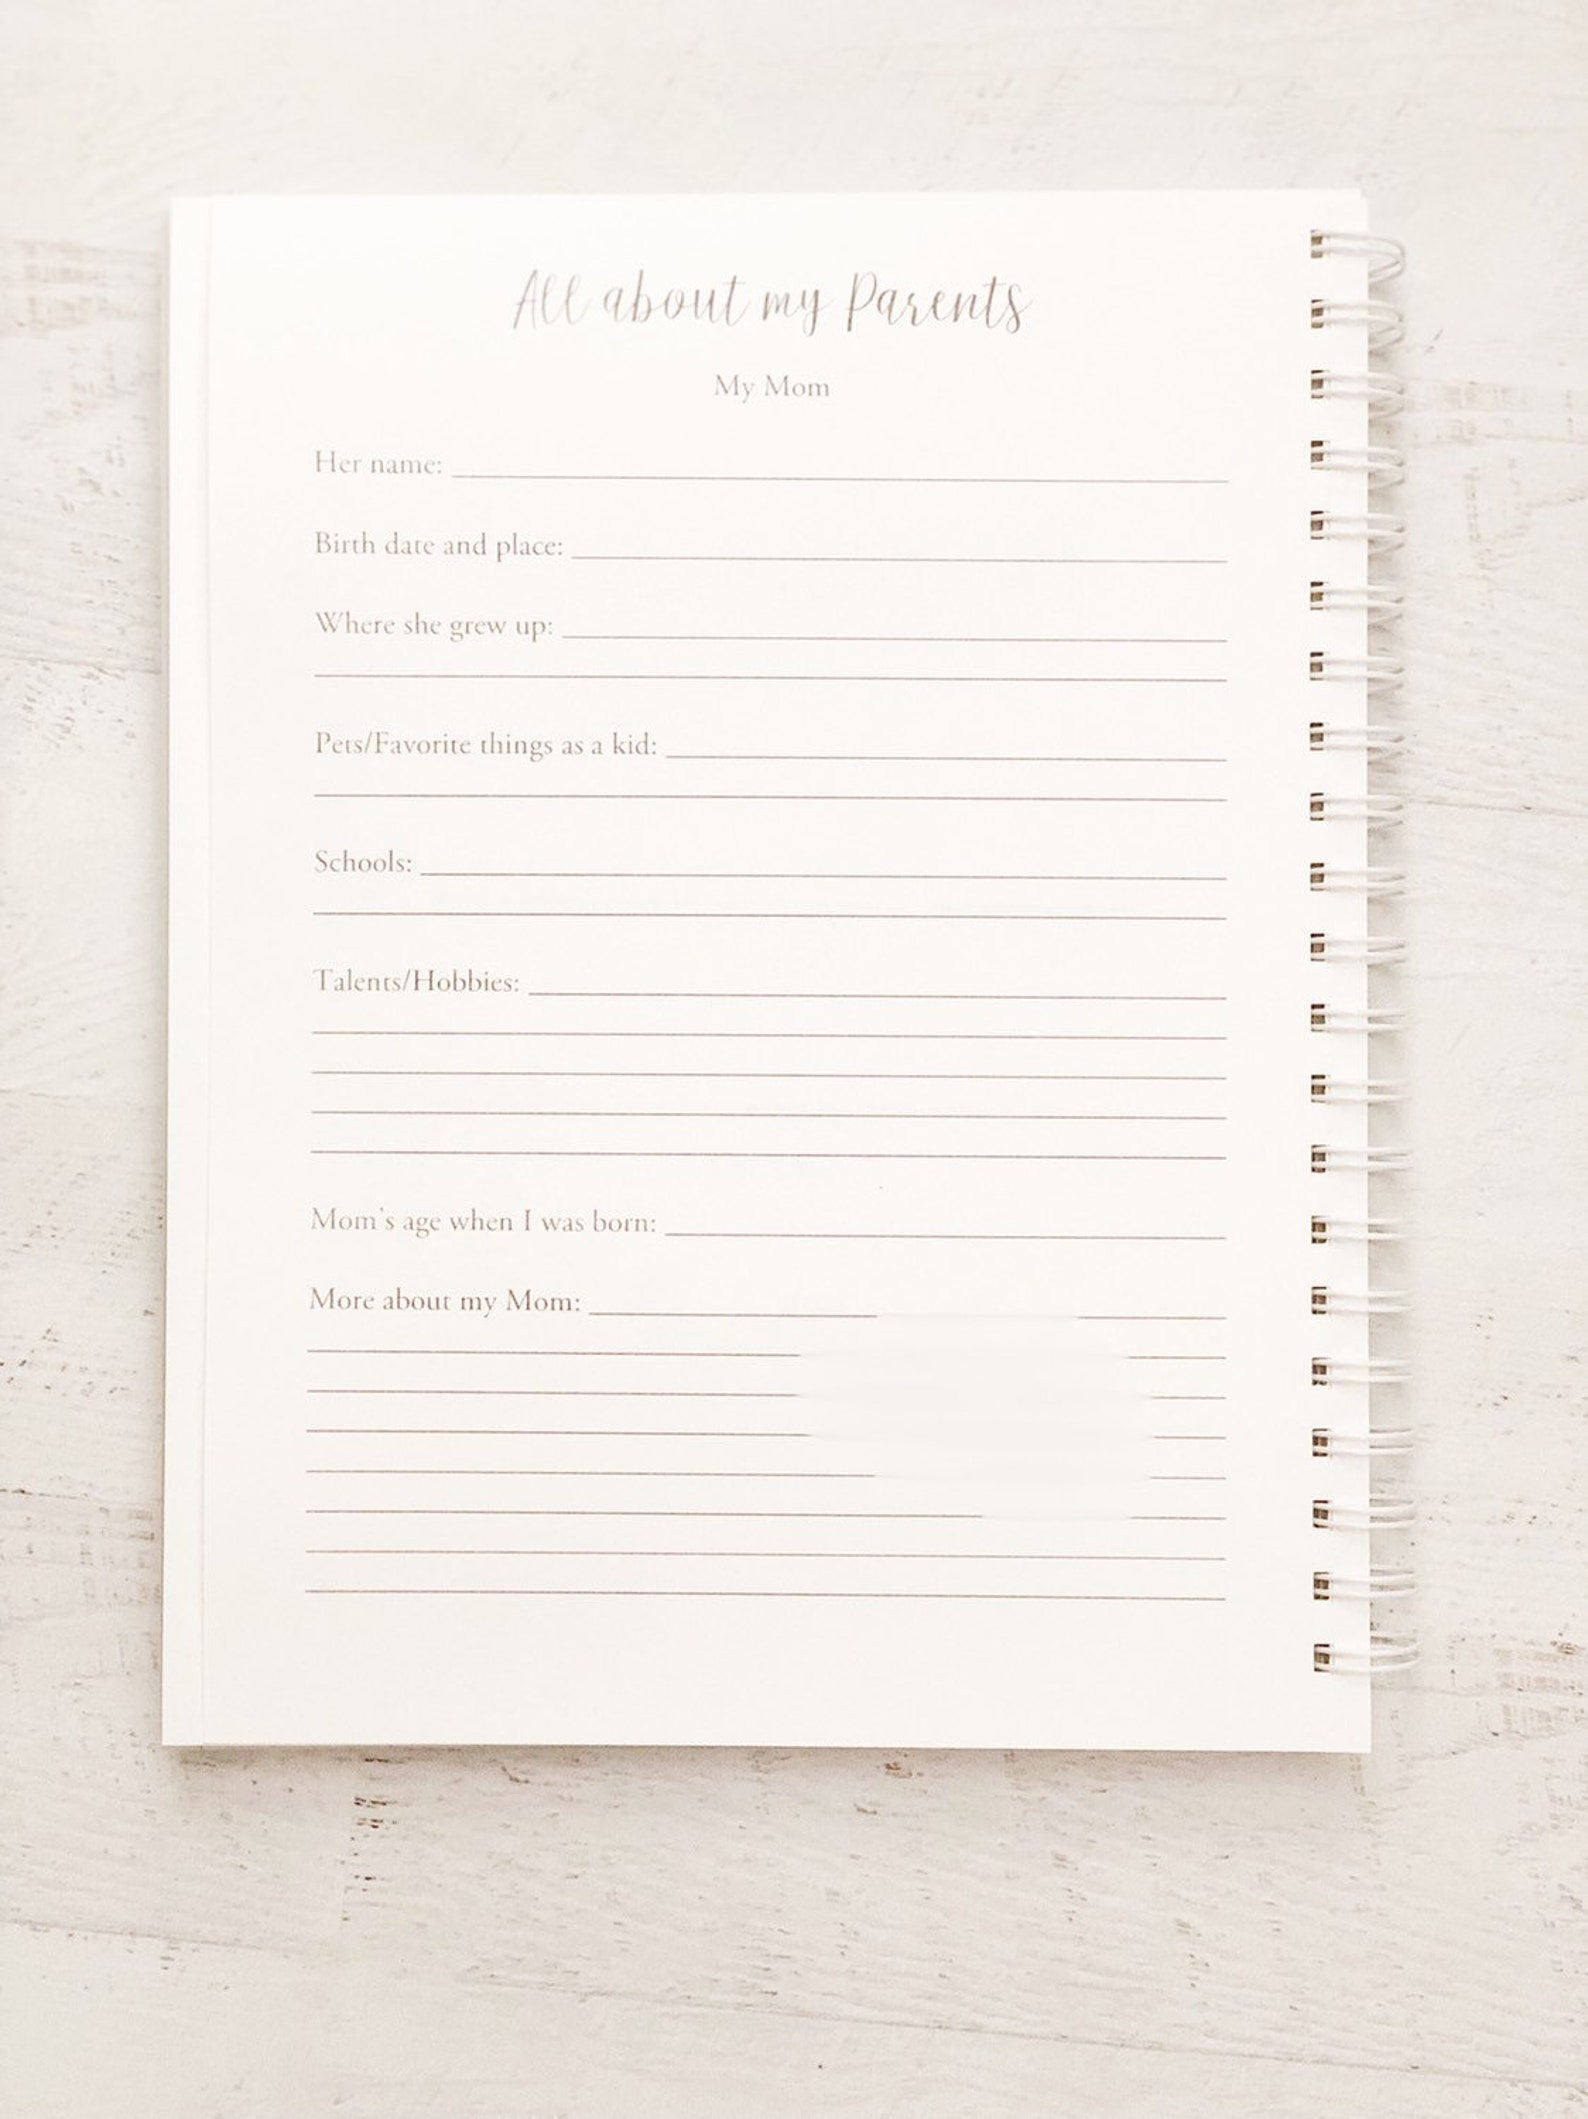 All about my Parents
My Mom
Her name:
Birth date and place:
Where she grew up:
Pets/Favorite things as a kid:
Schools:
Talents/Hobbies:
Mom's age when I was born:
More about my Mom: